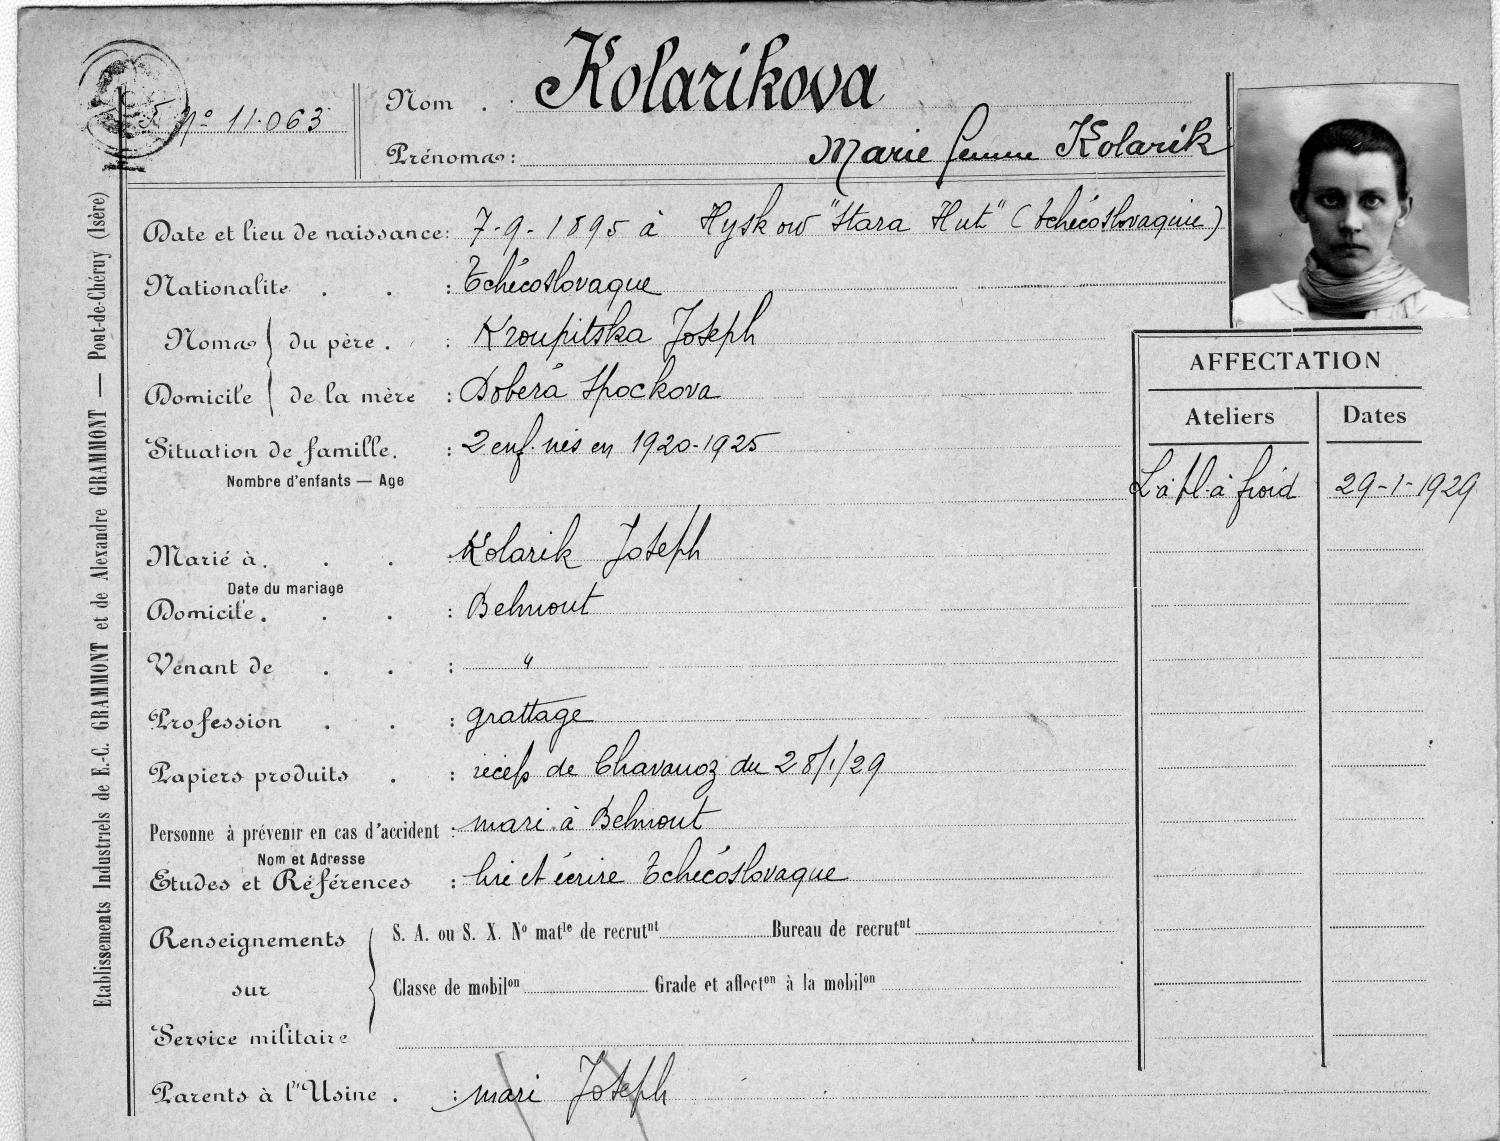 Nº 11.063
Nom . : Kolarikova
Prénoms : Marie femme Kolarik
Date et lieu de naissance : 7-9-1895 à Hyskow "Stara Hut" (tchécoslovaquie)
Nationalité . . : tchécoslovaque
Noms du père . : Kroupitska Joseph
Domicile de la mère : Dobera Spockova
Situation de famille. : 2 enf. nés en 1920-1925
Nombre d'enfants — Age
Marié à. . . : Kolarik Joseph
Date du mariage
Domicile. . . : Belmont
Venant de . . : "
Profession . . : grattage
Papiers produits . : récép de Chavanoz du 28/1/29
Personne à prévenir en cas d'accident : mari à Belmont
Nom et Adresse
Etudes et Références : lire et écrire tchécoslovaque
Renseignements sur Service militaire
S. A. ou S. X. Nº matle de recrutnt Bureau de recrutnt
Classe de mobilon Grade et affecton à la mobilon
Parents à l'Usine . : mari Joseph
AFFECTATION
Ateliers Dates
L. à pl. à froid 29-1-1929
Etablissements Industriels de E.-C. GRAMMONT et de Alexandre GRAMMONT — Pont-de-Chéruy (Isère)